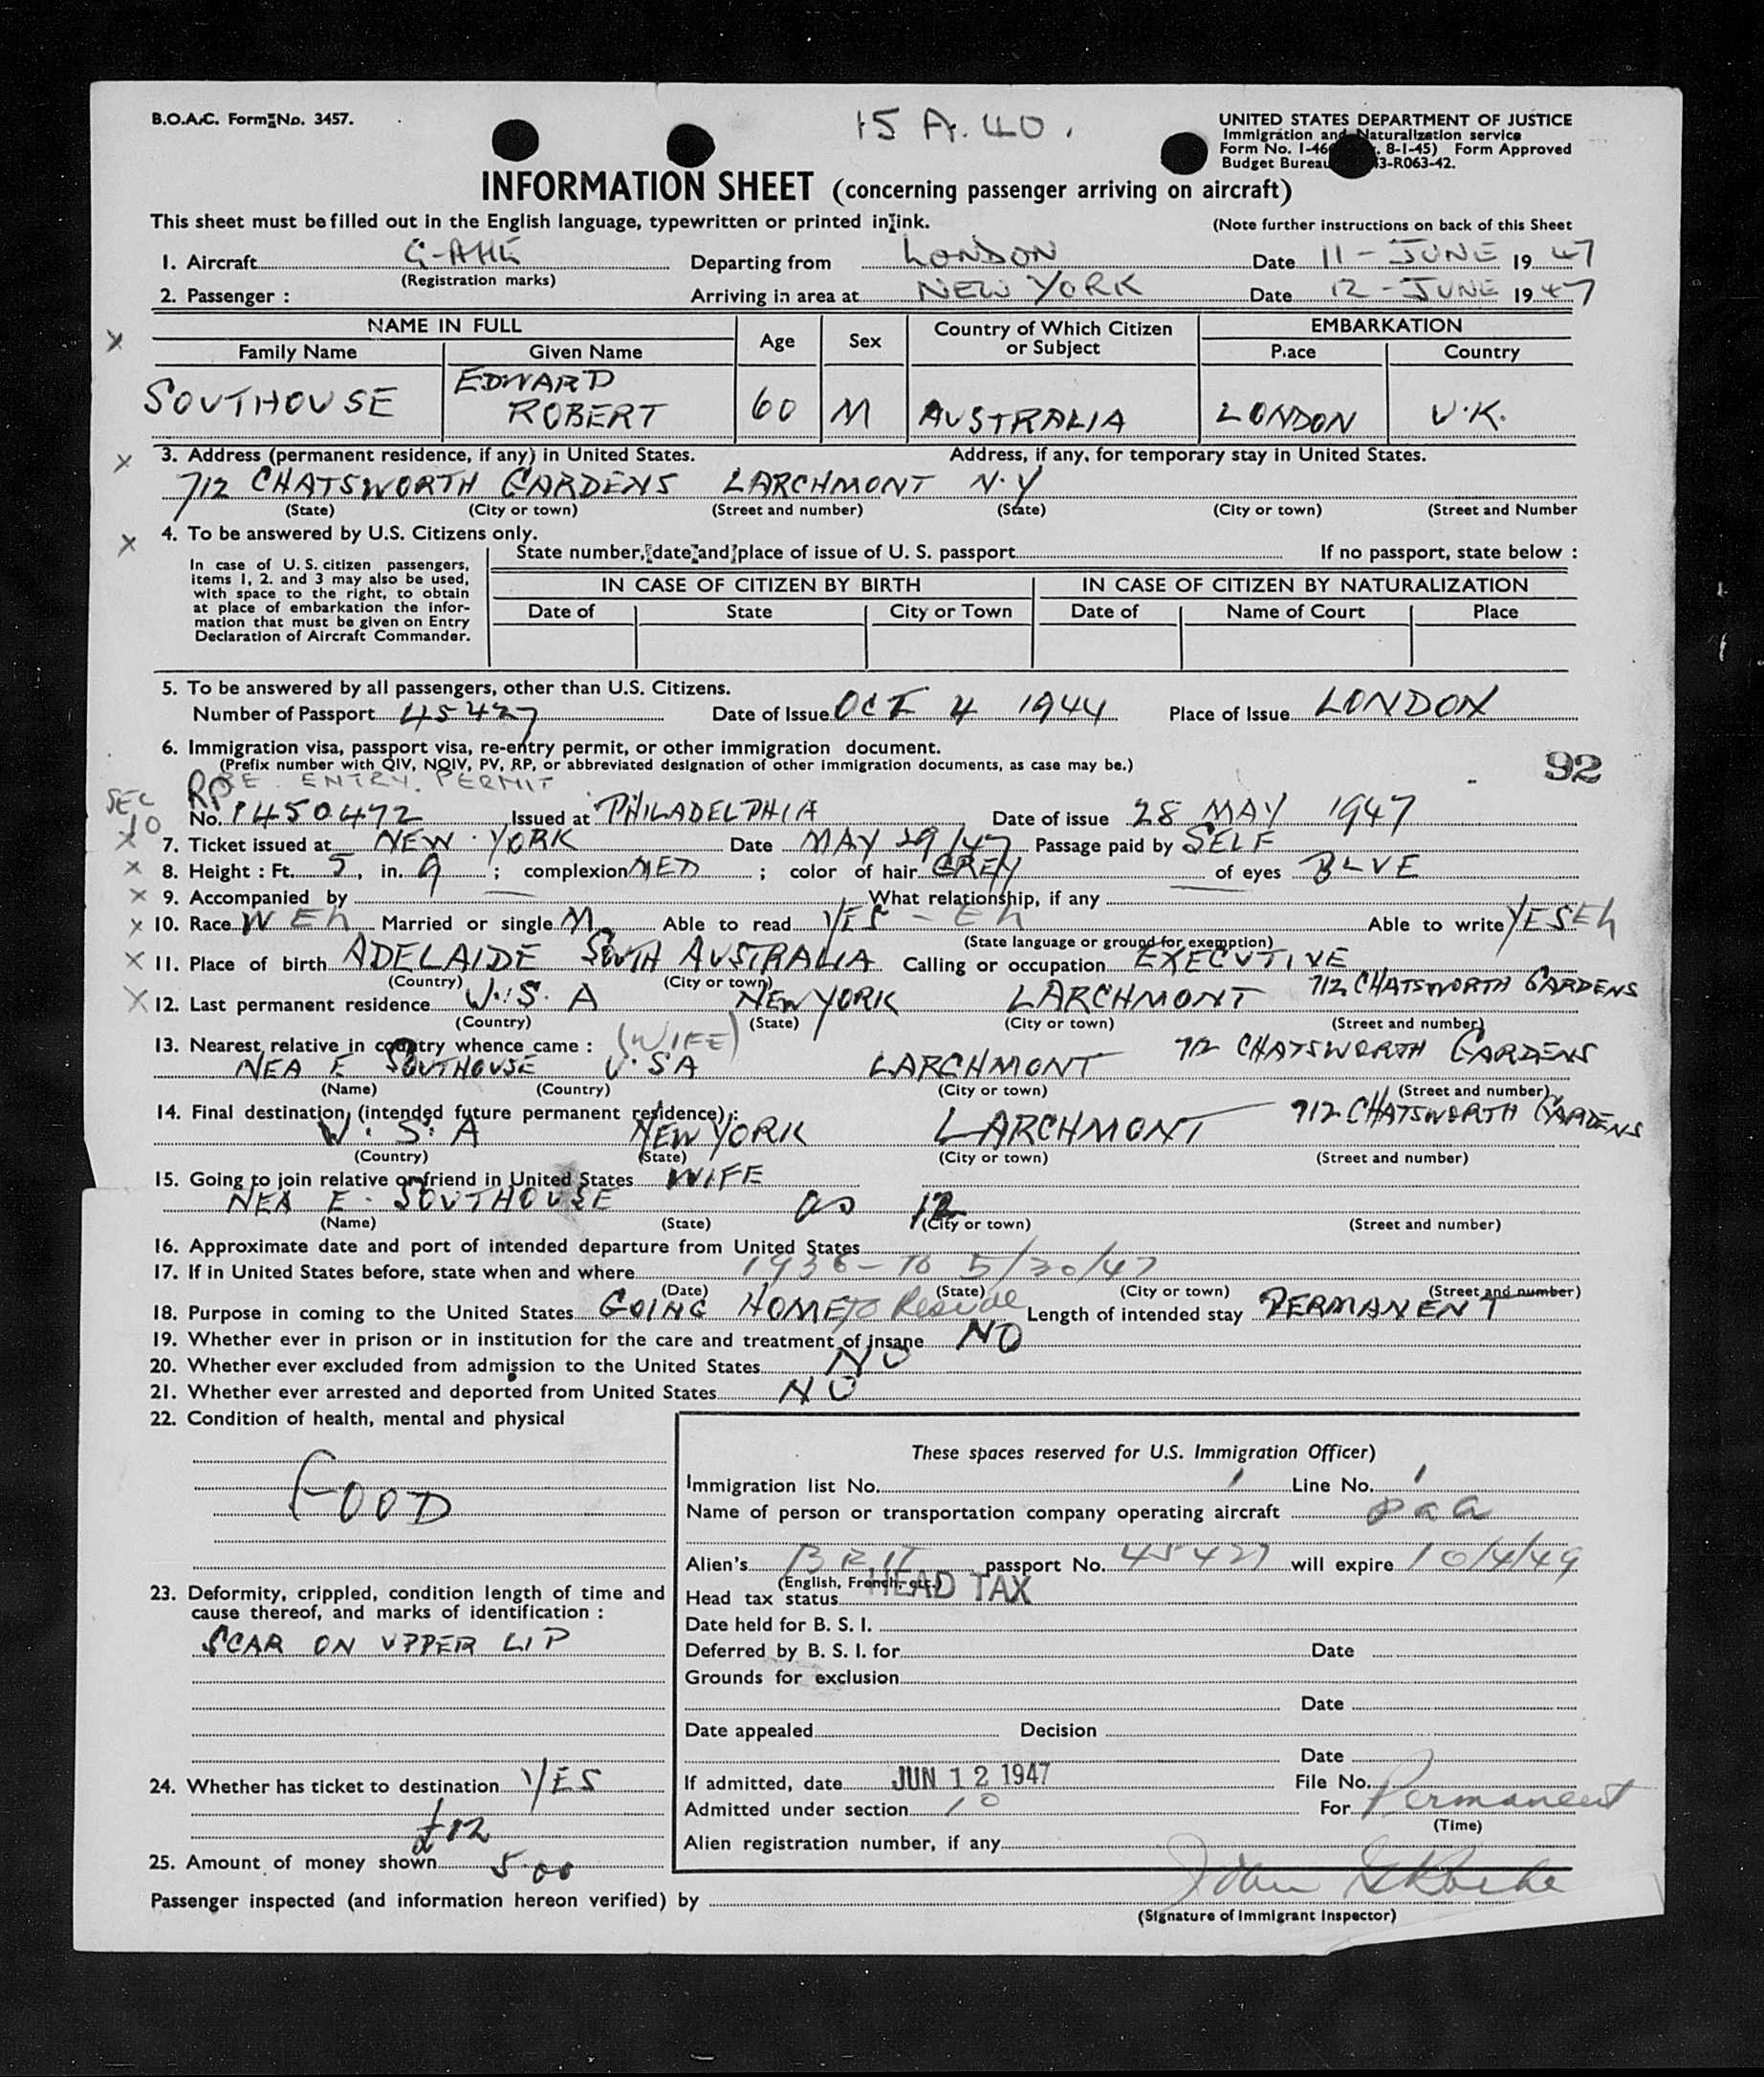 B.O.A.C. Form No. 3457.
15 A. 40.
UNITED STATES DEPARTMENT OF JUSTICE
Immigration and Naturalization service
Form No. I-46 . 8-1-45) Form Approved
Budget Bureau 43-R063-42.
INFORMATION SHEET (concerning passenger arriving on aircraft)
This sheet must be filled out in the English language, typewritten or printed in ink. (Note further instructions on back of this Sheet
1. Aircraft Departing from LONDON Date 11 - JUNE 1947
(Registration marks)
2. Passenger : Arriving in area at NEW YORK Date 12 - JUNE 1947
NAME IN FULL Age Sex Country of Which Citizen or Subject EMBARKATION
Family Name Given Name Place Country
SOUTHOUSE EDWARD ROBERT 60 M AUSTRALIA LONDON U.K.
3. Address (permanent residence, if any) in United States. Address, if any, for temporary stay in United States.
712 CHATSWORTH GARDENS LARCHMONT N.Y
(State) (City or town) (Street and number) (State) (City or town) (Street and Number
4. To be answered by U.S. Citizens only.
State number, date and place of issue of U. S. passport If no passport, state below :
In case of U.S. citizen passengers,
items 1, 2. and 3 may also be used,
with space to the right, to obtain
at place of embarkation the infor-
mation that must be given on Entry
Declaration of Aircraft Commander.
IN CASE OF CITIZEN BY BIRTH IN CASE OF CITIZEN BY NATURALIZATION
Date of State City or Town Date of Name of Court Place
5. To be answered by all passengers, other than U.S. Citizens.
Number of Passport 45427 Date of Issue OCT 4 1944 Place of Issue LONDON
6. Immigration visa, passport visa, re-entry permit, or other immigration document.
(Prefix number with QIV, NQIV, PV, RP, or abbreviated designation of other immigration documents, as case may be.)
92
RE ENTRY PERMIT
SEC 10
RP
No. 1450472 Issued at PHILADELPHIA Date of issue 28 MAY 1947
7. Ticket issued at NEW YORK Date MAY 29/47 Passage paid by SELF
8. Height : Ft. 5, in. 9 ; complexion MED ; color of hair GREY of eyes BLUE
9. Accompanied by What relationship, if any
10. Race W Eh Married or single M Able to read YES - Eh Able to write YES Eh
(State language or ground for exemption)
11. Place of birth ADELAIDE SOUTH AUSTRALIA Calling or occupation EXECUTIVE
(Country) (City or town)
12. Last permanent residence U.S.A NEW YORK LARCHMONT 712 CHATSWORTH GARDENS
(Country) (State) (City or town) (Street and number)
13. Nearest relative in country whence came : (WIFE)
NEA E SOUTHOUSE U.S A LARCHMONT 712 CHATSWORTH GARDENS
(Name) (Country) (City or town) (Street and number)
14. Final destination (intended future permanent residence) :
U.S.A NEW YORK LARCHMONT 712 CHATSWORTH GARDENS
(Country) (State) (City or town) (Street and number)
15. Going to join relative or friend in United States WIFE
NEA E. SOUTHOUSE as 12
(Name) (State) (City or town) (Street and number)
16. Approximate date and port of intended departure from United States
17. If in United States before, state when and where 1936 - TO 5/30/47
(Date) (State) (City or town) (Street and number)
18. Purpose in coming to the United States GOING HOME TO Reside Length of intended stay PERMANENT
19. Whether ever in prison or in institution for the care and treatment of insane NO
20. Whether ever excluded from admission to the United States NO
21. Whether ever arrested and deported from United States NO
22. Condition of health, mental and physical
GOOD
23. Deformity, crippled, condition length of time and
cause thereof, and marks of identification :
SCAR ON UPPER LIP
24. Whether has ticket to destination YES
£12
25. Amount of money shown 5.00
These spaces reserved for U.S. Immigration Officer)
Immigration list No. 1 Line No. 1
Name of person or transportation company operating aircraft
Alien's BRIT passport No. 45427 will expire 10/4/49
(English, French, etc.)
HEAD TAX
Head tax status
Date held for B. S. I.
Deferred by B. S. I. for Date
Grounds for exclusion
Date
Date appealed Decision
Date
If admitted, date JUN 12 1947 File No.
Admitted under section 10 For Permanent
(Time)
Alien registration number, if any
Passenger inspected (and information hereon verified) by John
(Signature of Immigrant Inspector)